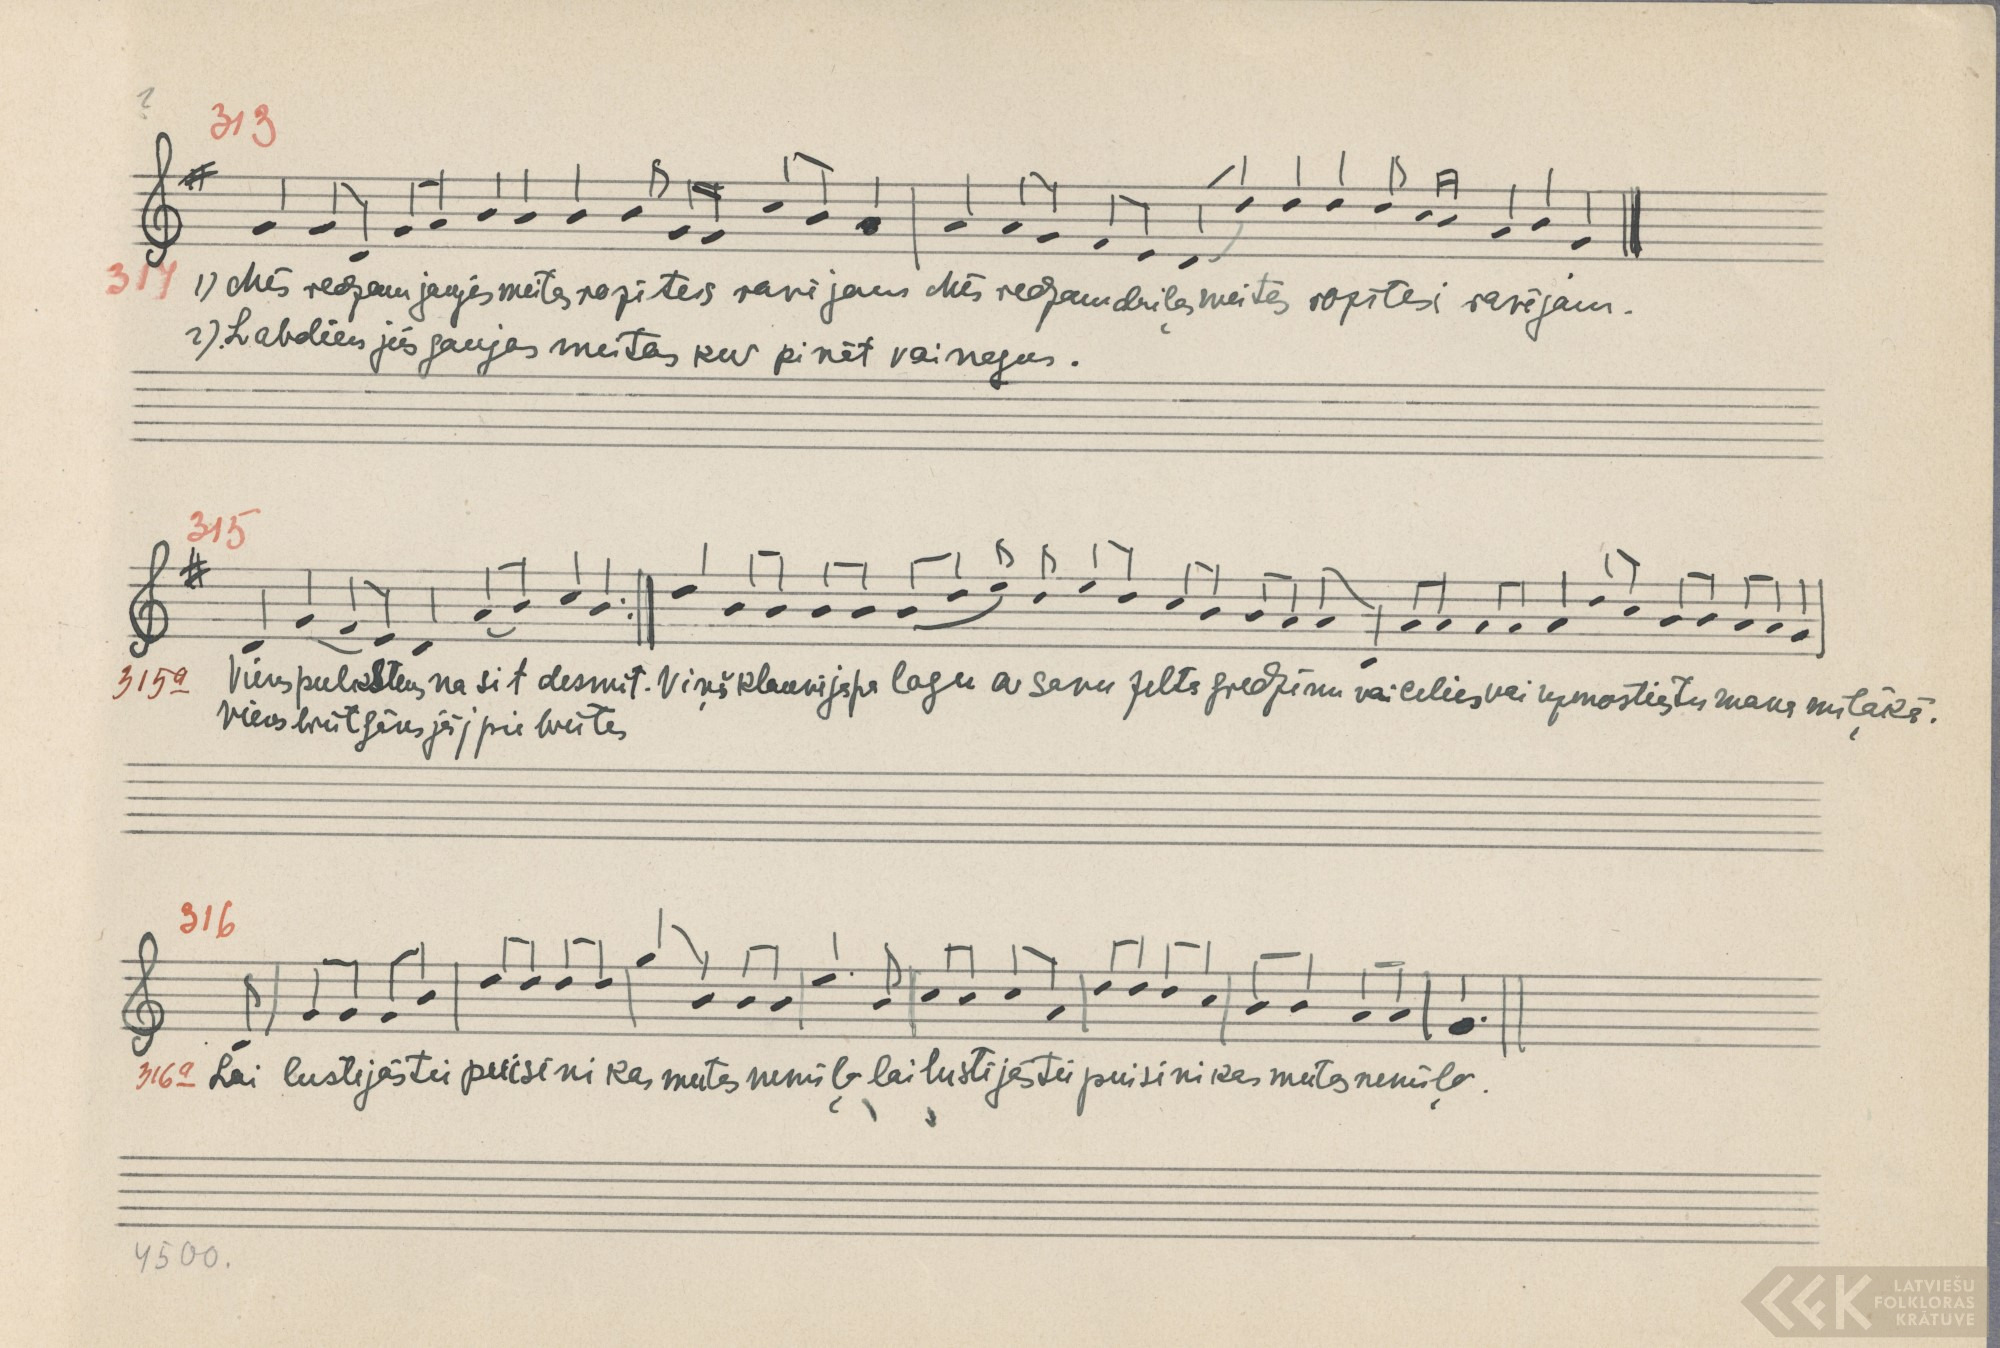 ?
313
314 1) Mēs redzam jaujas meitas ropites ravijam Mēs redzam meitas ropitesi ravējam.
2) Labdien jūs gaujas meitas kur pinēt vainagus.
315
315a Viens pulkstens na sit desmit. Viņš klauvija pa logu ar savu zelta gredzinu vai celies vai tu mana miļākā.
Viens brūtgāns jāj pie brūtes
316
316a Lai lustejās tie puisini kas meitas nemīļo lai lustijās tie puisini kas meitas nemīļo.
4500.
LATVIEŠU
FOLKLORAS
KRĀTUVE